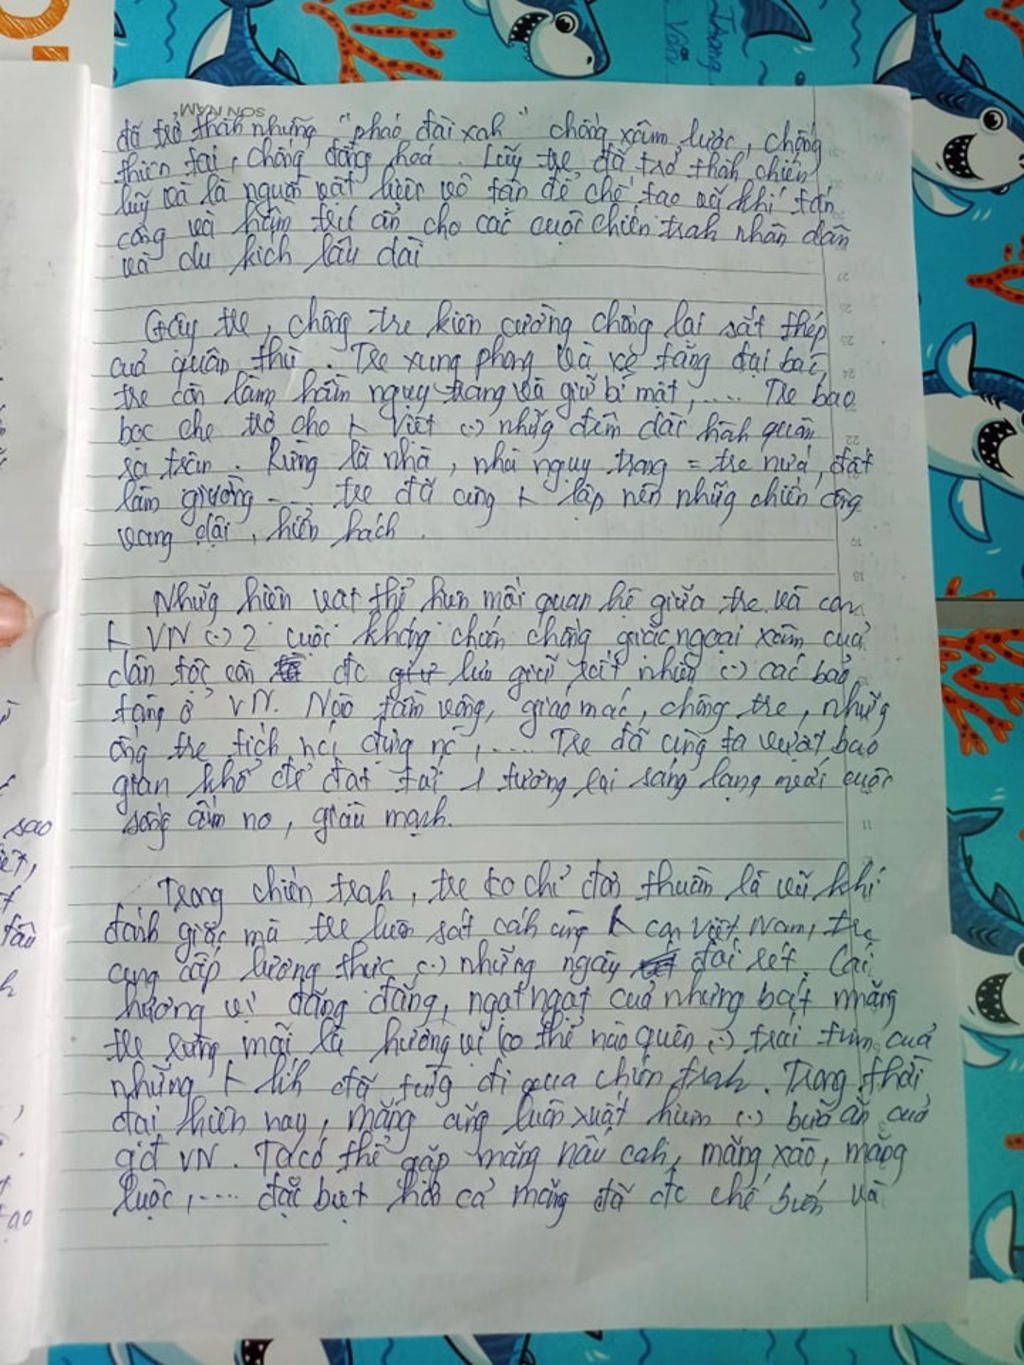 SƠN NAM
đã trở thành những "pháo đài xanh" chống xâm lược, chống
thiên tai, chống đồng hoá. Luỹ tre đã trở thành chiến
luỹ và là nguồn vật liệu vô tận để chế tạo vũ khí tấn
công và hầm trú ẩn cho các cuộc chiến tranh nhân dân
và du kích lâu dài
Gậy tre, chông tre kiên cường chống lại sắt thép
của quân thù. Tre xung phong và xe tăng đại bác,
tre còn làm hầm nguy trang và giữ bí mật, .... Tre bao
bọc che trở cho Việt (.) những đêm dài hành quân
sa trận. Rừng là nhà, nhà nguy trang = tre nứa, đất
làm giường ... tre đã cùng lập nên những chiến công
vang dội, hiển hách.
Những hiện vật thể hiện mối quan hệ giữa tre và con
VN (.) 2 cuộc kháng chiến chống giặc ngoại xâm của
dân tộc còn đc lưu giữ rất nhiều (.) các bảo
tàng ở VN. Ngọn tầm vông, giáo mác, chông tre, những
ống tre tích nơi đựng nc, .... Tre đã cùng ta vượt bao
gian khổ để đạt tới 1 tương lai sáng lạng mới cuộc
sống ấm no, giàu mạnh.
Trong chiến tranh, tre ko chỉ đơn thuần là vũ khí
đánh giặc mà tre luôn sát cánh cùng con Việt Nam, tre
cung cấp lương thực (.) những ngày đói rét. Cái
hương vị đăng đắng, ngạt ngạt của những bát măng
tre rừng mãi là hương vị ko thể nào quên (.) trái tim của
những lính đã từng đi qua chiến tranh. Trong thời
đại hiện nay, măng cũng luôn xuất hiện (.) bữa ăn của
gđ VN. Ta có thể gặp măng nấu canh, măng xào, măng
luộc, .... đặc biệt hơn cả măng đã đc chế biến và